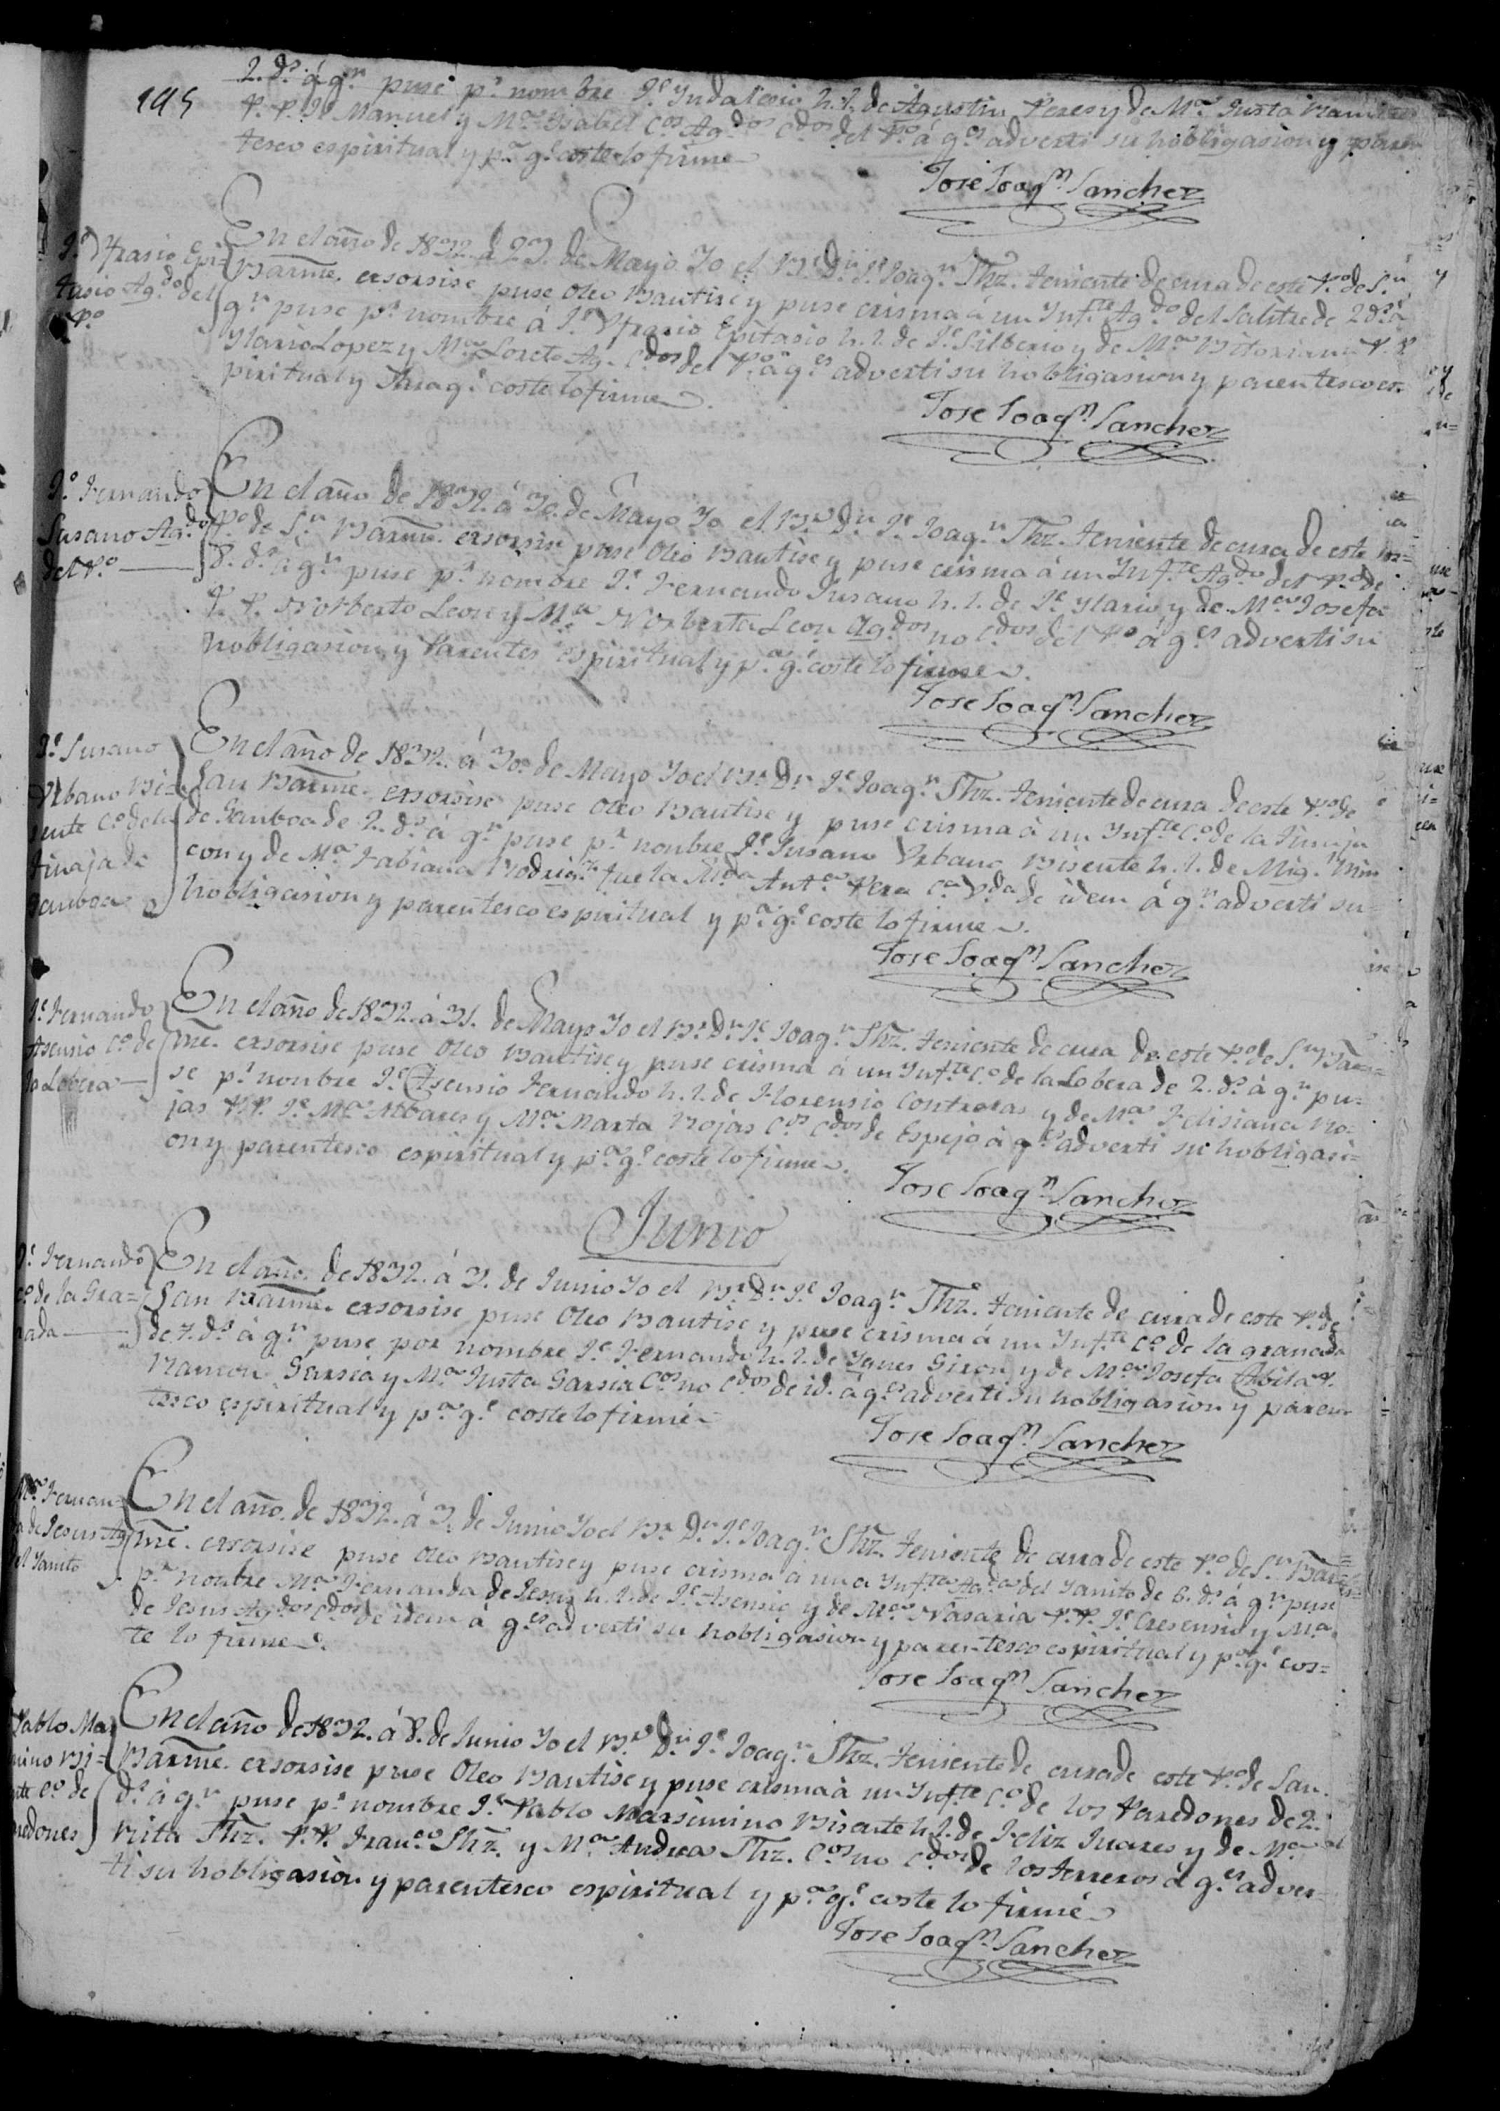 195
2. ds. á qn. puse pr. nombre Je. Yndalesio h. l. de Agustin Peres y de Ma. Justa
P. P. Je. Manuel y Ma. Ysabel Cos. Agdos. Cdos. del Po. á qes. adverti su hobligasion y paren
tesco espiritual y pa. qe. coste lo firme
Jose Joaqn. Sanchez
Epi=
tasio Agdo. del
Po.
En el año de 1832. á 29. de Mayo Yo el Br. Dn. Je. Joaqn. Shz. teniente de cura de este Po. de Sn.
Barme. exsorsise puse Oleo Bautise y puse crisma á un Ynfte. Agdo. del Salitre de 2 ds. á
qn. puse pr. nombre á Je. Epitasio h. l. de Je. Silberio y de Ma. Bitoriana P. P.
Ylario Lopez y Ma. Loreto Ag. Cdos. del Po. á qes. adverti su hobligasion y parentesco es
piritual y qe. coste lo firme
Jose Joaqn. Sanchez
Je. Fernando
Susano Agdo.
del Po.
En el año de 1832. á 30. de Mayo Yo el Br. Dn. Je. Joaqn. Shz. teniente de cura de este
Po. de Sn. Barme. exsorsise puse Oleo Bautise y puse crisma á un Ynfte. Agdo. del Po. de
8. ds. á qn. puse pr. nombre Je. Fernando Susano h. l. de Je. Ylario y de Ma. Josefa
P. P. Norberto Leon y Ma. Norberta Leon Agdos. no Cdos. del Po. á qes. adverti su
hobligasion y Parentes espiritual y pa. qe. coste lo firme
Jose Joaqn. Sanchez
Je. Susano
Urbano Bi=
sente Co. de la
tinaja de
Gamboa
En el año de 1832. á 30. de Mayo Yo el Br. Dn. Je. Joaqn. Shz. teniente de cura de este Po. de
San Barme. exsorsise puse Oleo Bautise y puse crisma á un Ynfte. Co. de la tinaja
de Gamboa de 2. ds. á qn. puse pr. nombre Je. Susano Urbano Bisente h. l. de Migl. Rin
con y de Ma. Fabiana Rodrigz. fue la Mda. Anta. Vera Ca. Vda. de idem á qn. adverti su
hobligasion y parentesco espiritual y pa. qe. coste lo firme
Jose Joaqn. Sanchez
Je. Fernando
Asensio Co. de
la Lobera
En el año de 1832. á 31. de Mayo Yo el Br. Dn. Je. Joaqn. Shz. teniente de cura de este Po. de Sn. Bar=
me. exsorsise puse Oleo Bautise y puse crisma á un Ynfte. Co. de la Lobera de 2. ds. á qn. pu=
se pr. nombre Je. Asensio Fernando h. l. de Florensio Contreras y de Ma. Felisiana Ro=
jas PP. Je. Ma. Albares y Ma. Marta Rojas Cos. Cdos. de Espejo á qes. adverti su hobligasi=
on y parentesco espiritual y pa. qe. coste lo firme
Jose Joaqn. Sanchez
Junio
Je. Fernando
Co. de la Gra=
nada
En el año de 1832. á 3. de Junio Yo el Br. Dn. Je. Joaqn. Shz. teniente de cura de este Po. de
San Barme. exsorsise puse Oleo Bautise y puse crisma á un Ynfte. Co. de la granada
de 7. ds. á qn. puse por nombre Je. Fernando h. l. de Ygnes Giron y de Ma. Josefa Abila P.
Ramon Garsia y Ma. Justa Garsia Cos. no Cdos. de id. á qes. adverti su hobligasion y paren
tesco espiritual y pa. qe. coste lo firme
Jose Joaqn. Sanchez
Ma. Fernan
da de Jesus Ag
del Sanito
En el año de 1832. á 3. de Junio Yo el Br. Dn. Je. Joaqn. Shz. teniente de cura de este Po. de Sn. Bar
me. exsorsise puse Oleo Bautise y puse crisma á una Ynfta. Agda. del Sanito de 6. ds. á qn. puse
pr. nombre Ma. Fernanda de Jesus h. l. de Je. Asensio y de Ma. Nasaria P. P. Je. Cresensio y Ma.
de Jesus Agdos. Cdos. de idem á qes. adverti su hobligasion y parentesco espiritual y pa. qe. cos=
te lo firme
Jose Joaqn. Sanchez
Pablo Mar
simino Bi=
sente Co. de
Paredones
En el año de 1832. á 8. de Junio Yo el Br. Dn. Je. Joaqn. Shz. teniente de cura de este Po. de San
Barme. exsorsise puse Oleo Bautise y puse crisma á un Ynfte. Co. de los Paredones de 2.
ds. á qn. puse pr. nombre Je. Pablo Marsimino Bisente h. l. de Feliz Juares y de Ma.
Rita Shz. P. P. Franco. Shz. y Ma. Andrea Shz. Cos. no Cdos. de los terreros á qes. adver=
ti su hobligasion y parentesco espiritual y pa. qe. coste lo firmé
Jose Joaqn. Sanchez